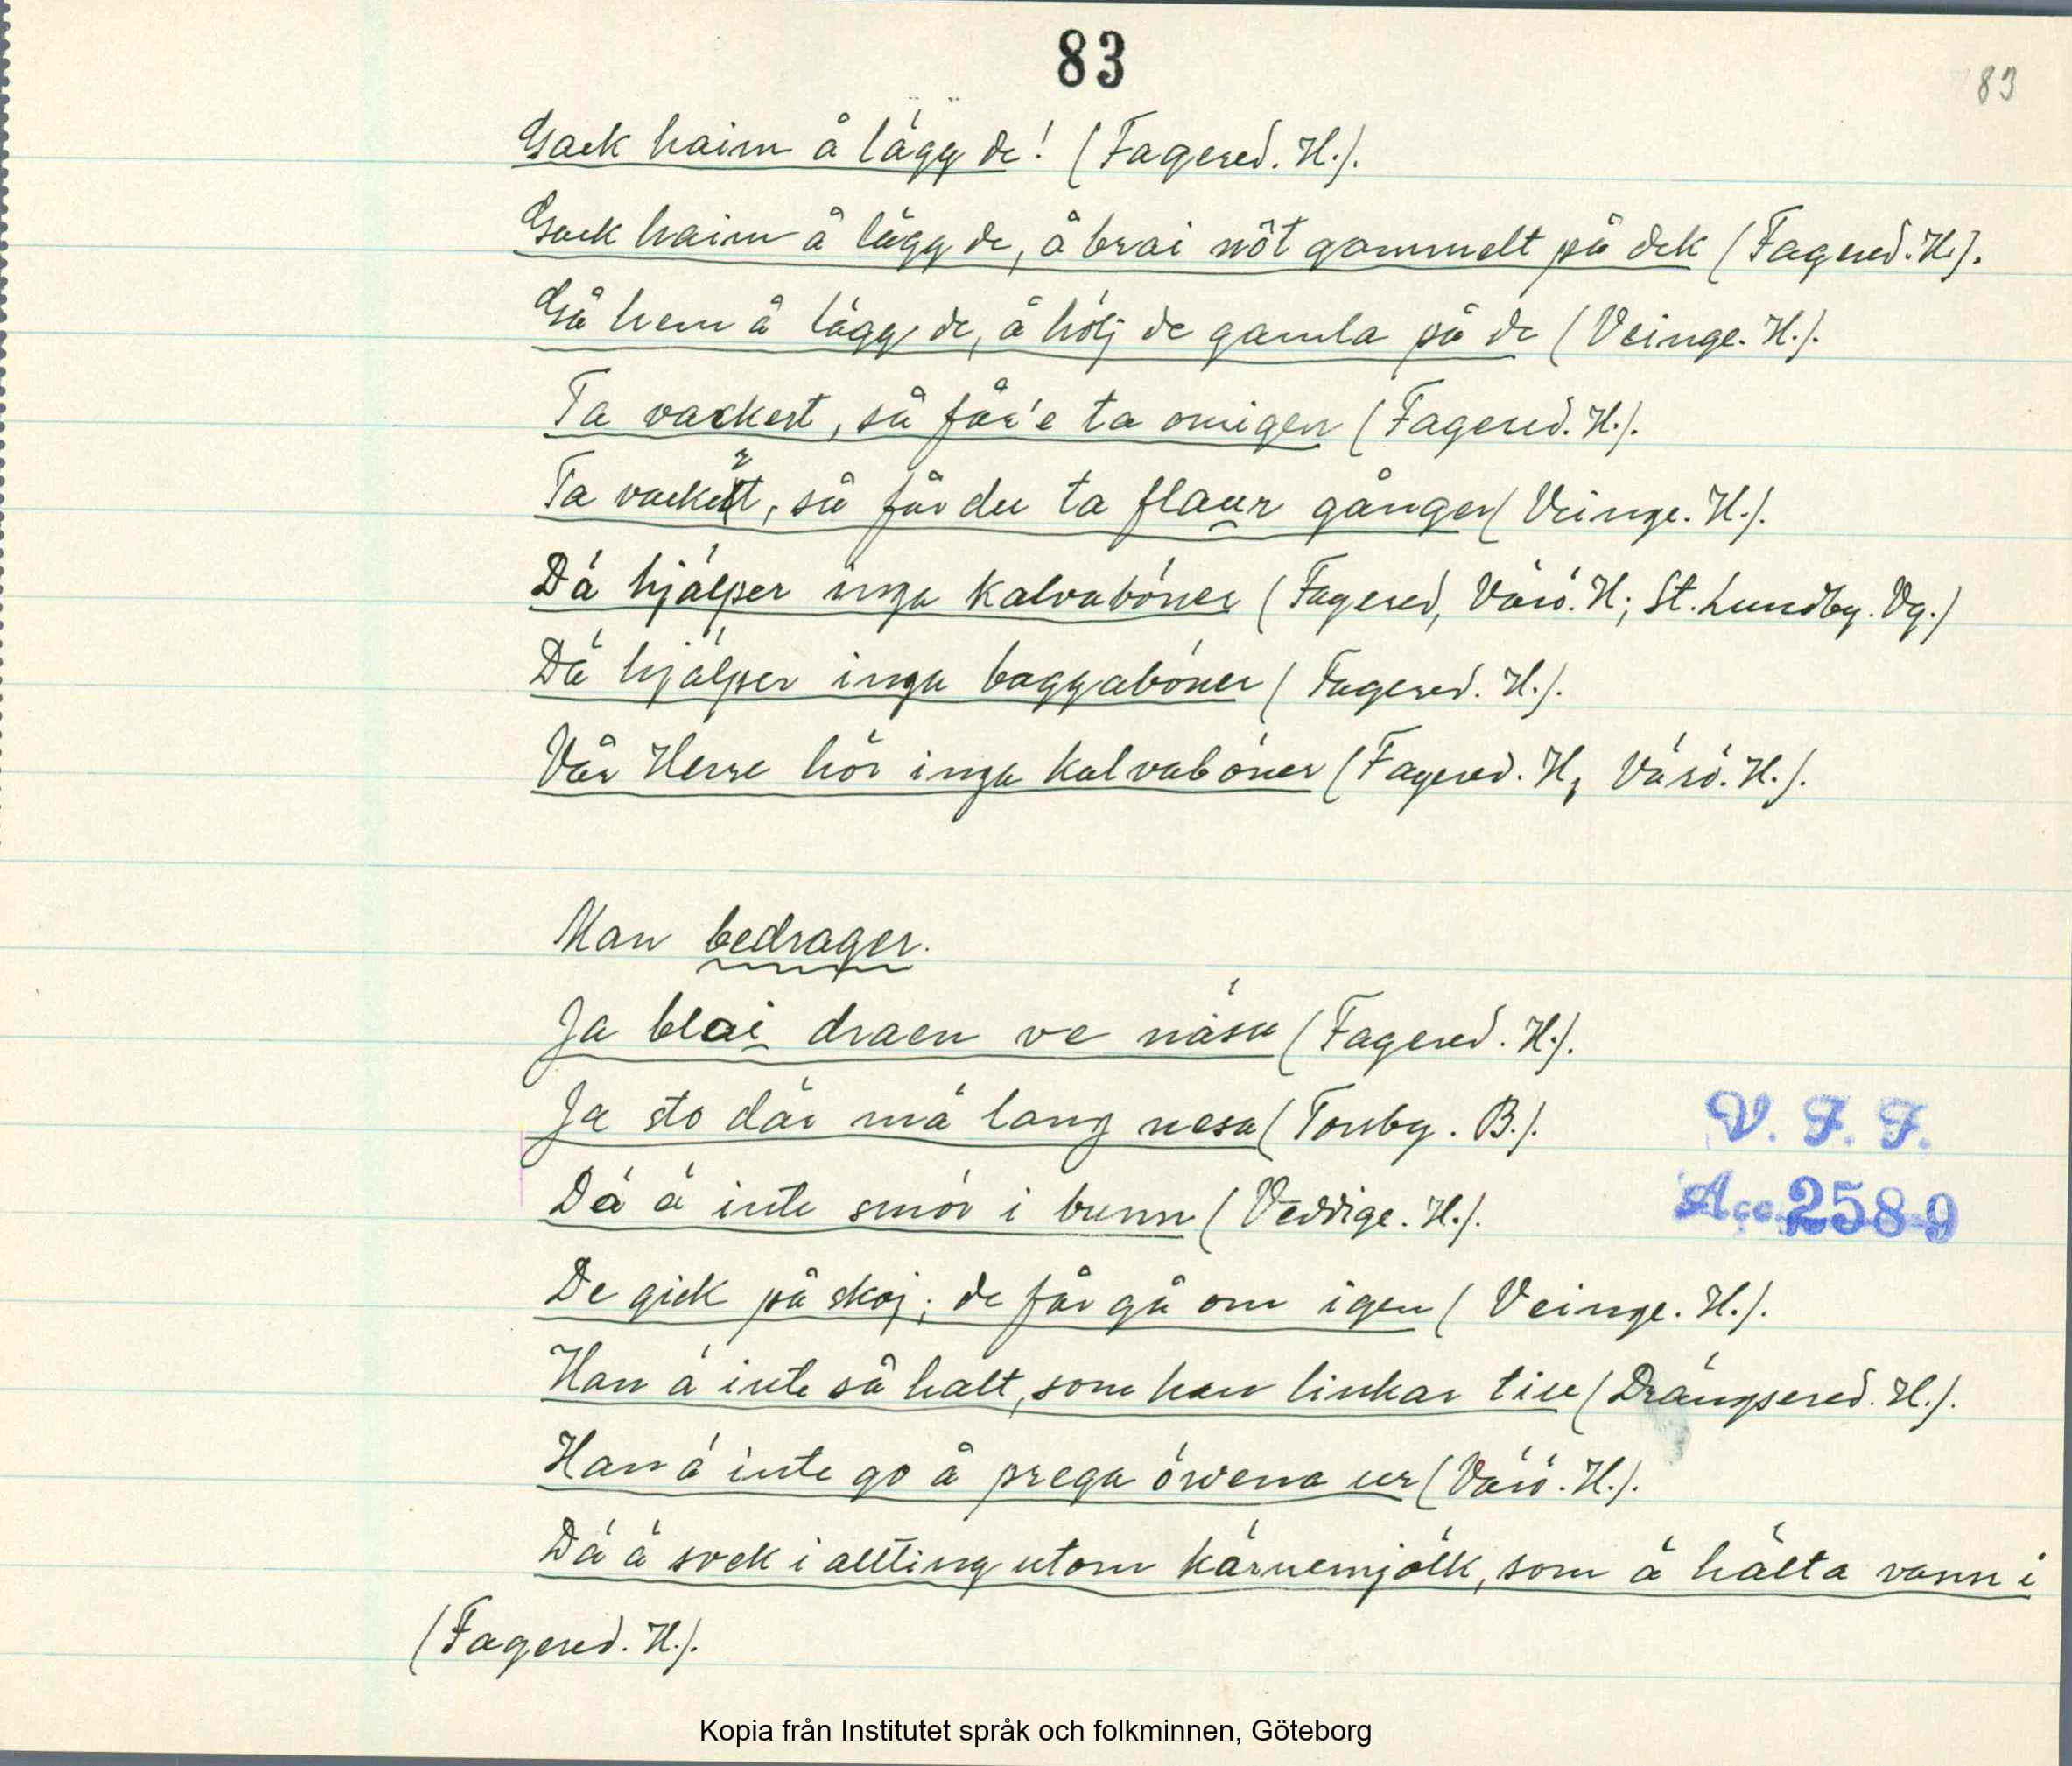 83
83
Gack haim å lägg de! (Fagered. H.).
Gack haim å lägg de, å brai nôt gammelt på dek (Fagered. H.).
Gå hem å lägg de, å hölj de gamla på de (Veinge. H.).
Ta vackert, så får'e ta omigen (Fagered. H.).
Ta vackert, så får du ta flaur gånger (Veinge. H.).
Dä hjälper inga kalvaböner (Fagered, Värö. H; St. Lundby. Vg.)
Dä hjälper inga baggaböner (Fagered. H.).
Vår Herre hör inga kalvaböner (Fagered. H, Värö. H.).
Man bedrager.
Ja blai draen ve näsa (Fagered. H.).
Ja sto där mä lang nesa (Torsby. B.).
Dä ä inte smör i bunn (Veddige. H.).
De gick på skoj; de får gå om igen (Veinge. H.).
Han ä inte så halt, som han linkar till (Drängsered. H.).
Han ä inte go å prega öwena ur (Värö. H.).
Dä ä svek i allting utom kärnemjölk, som ä hälta vann i
(Fagered. H.).
V. F. F.
Acc. 2589
Kopia från Institutet språk och folkminnen, Göteborg